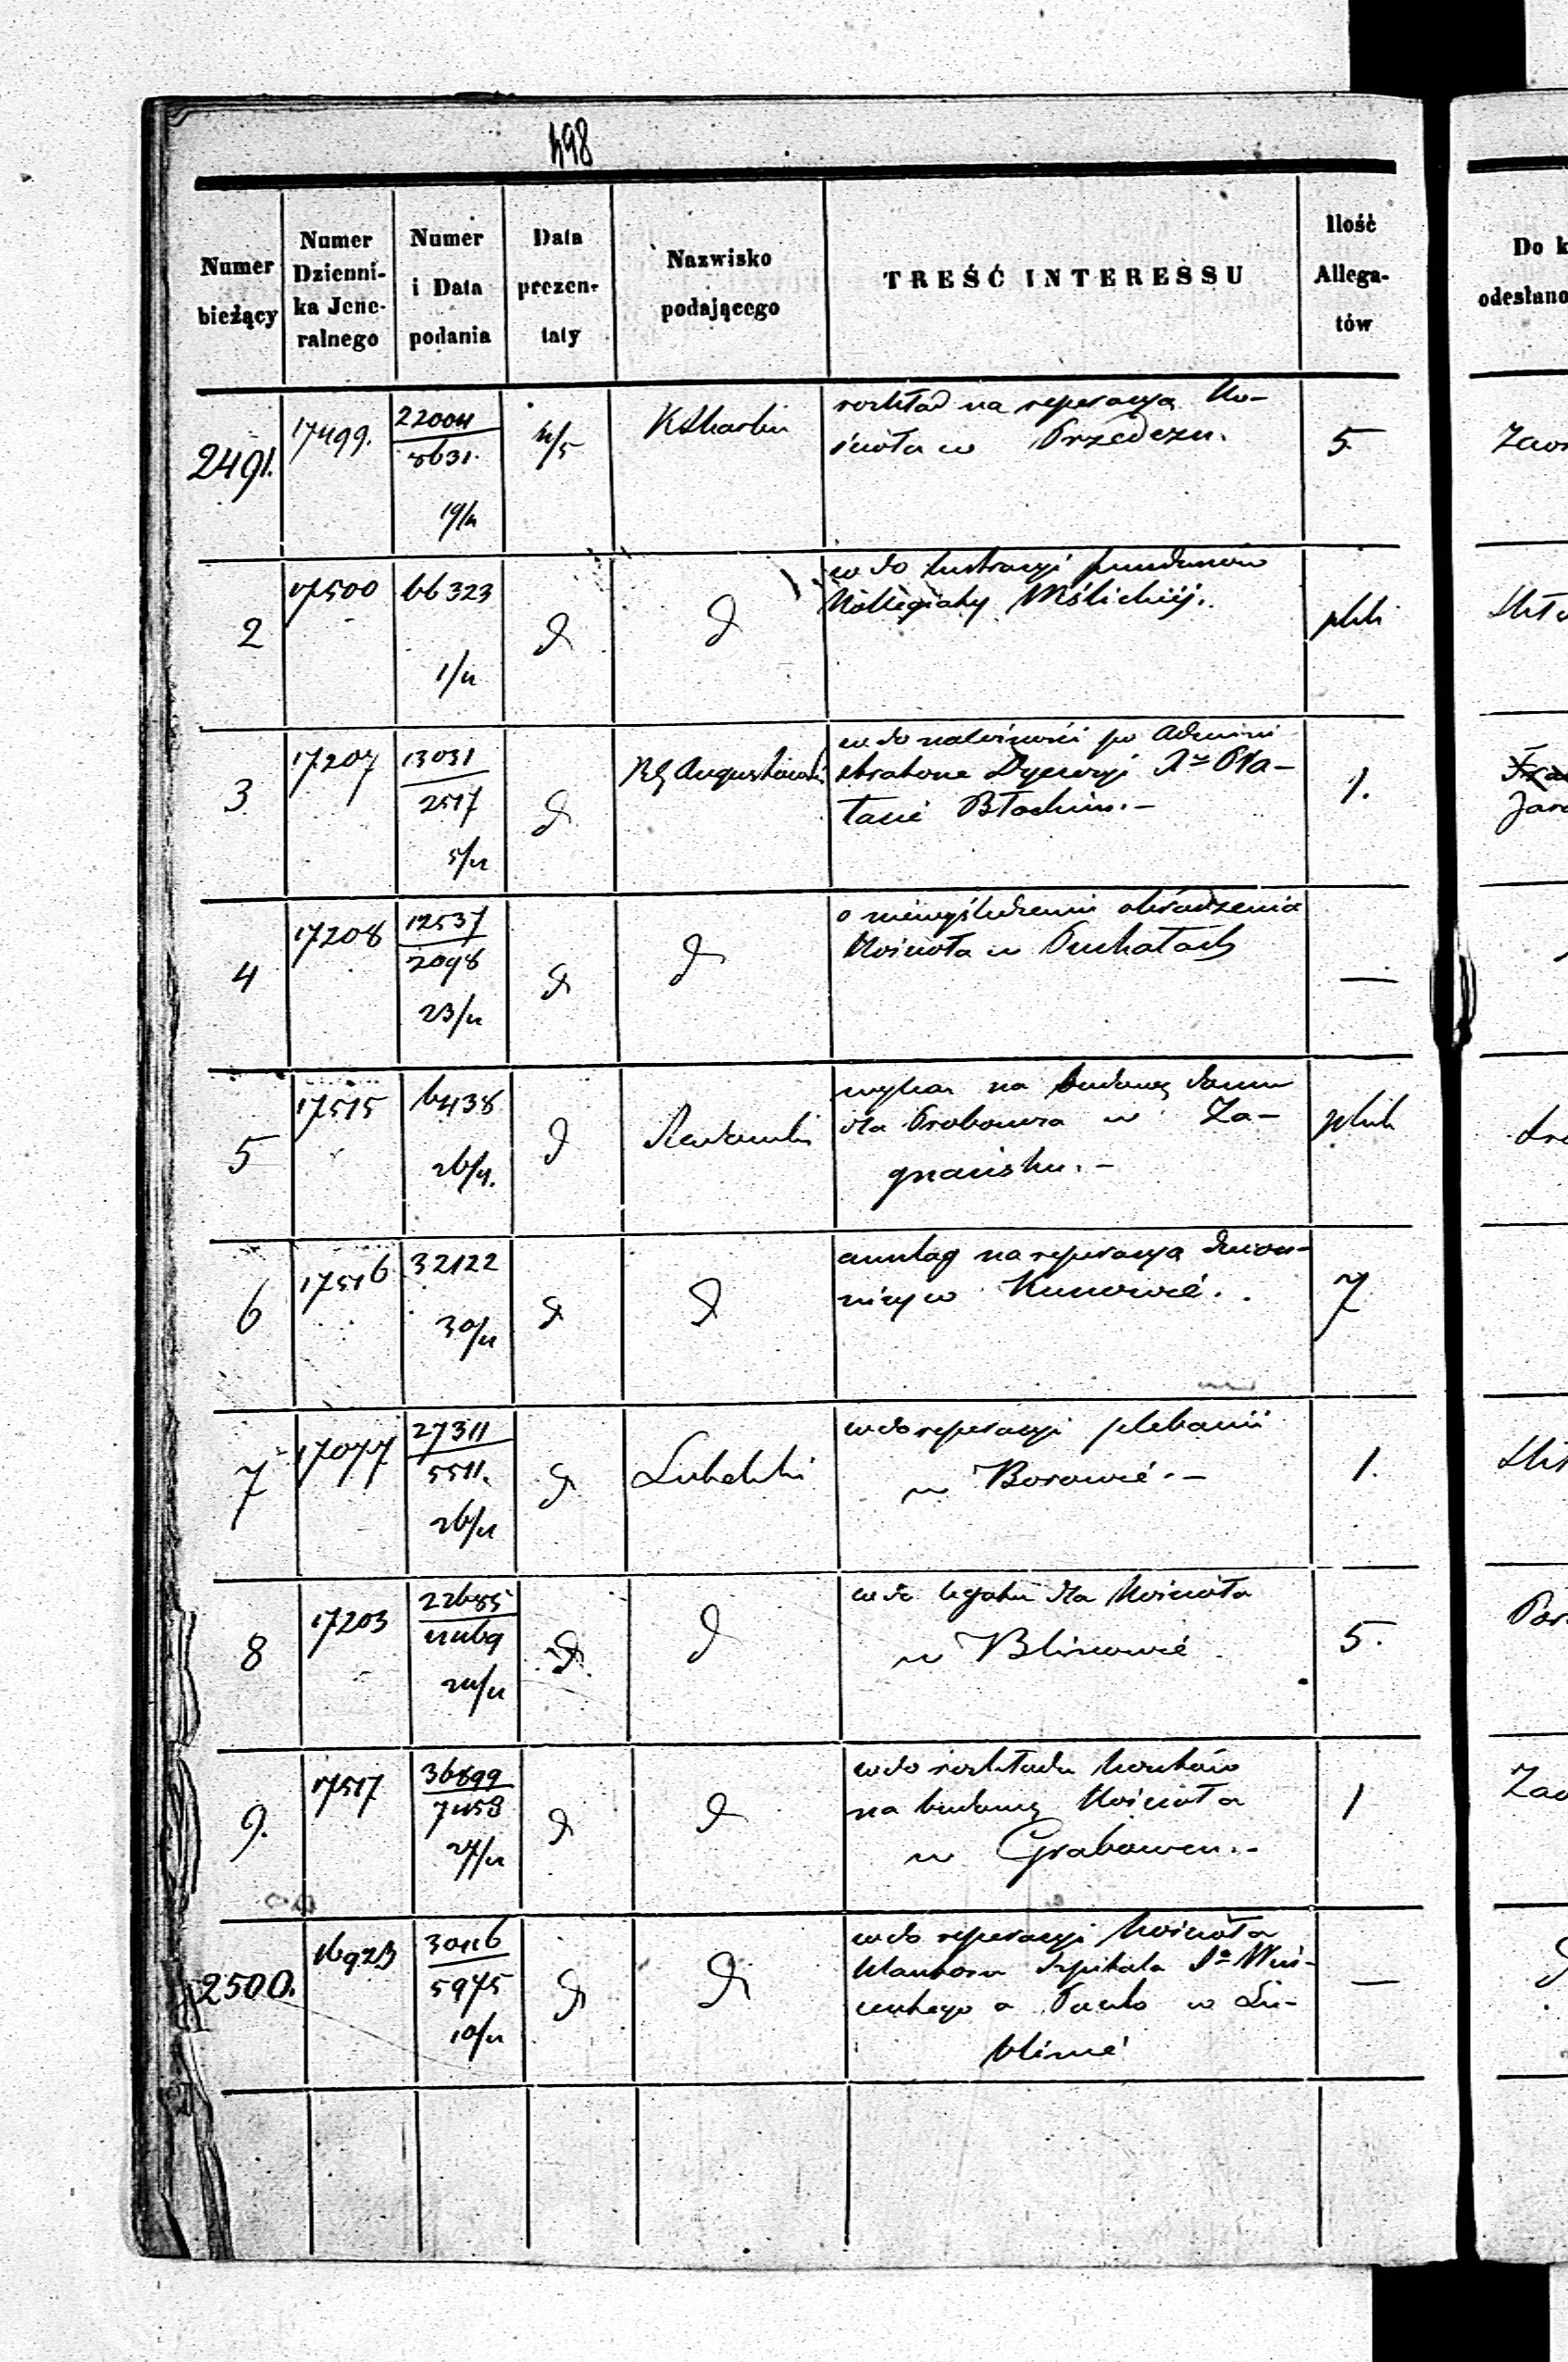 498
Numer bieżący
Numer Dzienni-ka Jene-ralnego
Numer i Data podania
Data prezen-taty
Nazwisko podającego
TREŚĆ INTERESSU
Ilość Allega-tów
Do k
odesłano
2491. 17499. 22004 8631. 19/4 4/5 K Skarbu 5
rozkład na reperacyą Ko-
ścioła w Przedczu.
2 17500 66323 1/4 d d plik
w do lustracyi funduszów
Kollegiaty Mślickiéj.
3 17207 13031 2517 5/4 d RG Augustowski 1.
w do należności po Admini
stratorze Dyecezyi
4 17208 12537 2098 23/4 d d —
o obsadzenia
Kościoła w Puchałach
5 17515 6438 26/4. d Radomski plik
wykaz na budowę domu
dla Proboszcza w Za-
gnańsku. –
6 17516 32122 30/4 d d 7
anszlag na reperacyą dzwon-
nicy w Kunowie.
7 17077 27311 5511. 26/4 d Lubelski 1.
w do reperacyi plebanii
w Borowie. –
8 17203 22685 24/4 d d 5.
w do legatu dla Kościoła
w Blinowie
9. 17517 36899 7458 27/4 d d 1
w do rozkładu kosztów
na budowę Kościoła
w Grabowcu. –
2500. 16923 3046 5975 10/4 d d —
w do reperacyi Kościoła
Klasztoru Szpitala Sgo Win-
centego a Paulo w Lu-
blinie